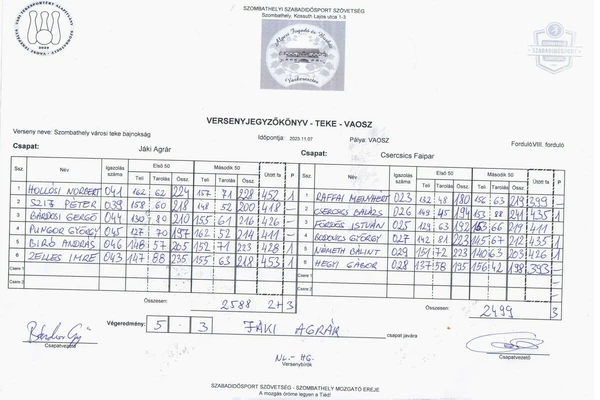 SZOMBATHELYI SZABADIDŐSPORT SZÖVETSÉG
Szombathely, Kossuth Lajos utca 1-3
VERSENYJEGYZŐKÖNYV - TEKE - VAOSZ
Verseny neve: Szombathely városi teke bajnokság Időpontja: 2023.11.07 Pálya: VAOSZ Forduló VIII. forduló
Csapat: Jáki Agrár Csapat: Csercsics Faipar
Ssz. Név Igazolás száma Első 50 Második 50 Ütött fa P Ssz. Név Igazolás száma Első 50 Második 50 Ütött fa P
Teli Tarolás Össz. Teli Tarolás Össz. Teli Tarolás Össz. Teli Tarolás Össz.
1 HOLLÓSI NORBERT 041 162 62 224 157 71 228 452 1 1 RAFFAI MENYHÉRT 023 132 48 180 156 63 219 399 –
2 SZIJ PÉTER 039 158 60 218 148 52 200 418 – 2 CSERCSICS BALÁZS 026 149 45 194 153 88 241 435 1
3 BÁRDOSI GERGŐ 044 130 80 210 155 61 216 426 – 3 ISTVÁN 025 129 63 192 153 66 219 411 –
4 PUNGOR GYÖRGY 045 127 70 197 162 52 214 411 – 4 GYÖRGY 027 142 81 223 145 67 212 435 1
5 BIRÓ ANDRÁS 046 148 57 205 152 71 223 428 1 5 NÉMETH BÁLINT 029 151 72 223 140 63 203 426 1
6 ZELLES IMRE 043 147 88 235 155 63 218 453 1 6 HEGYI GÁBOR 028 137 58 195 156 42 198 393 –
Csere 1 Csere 1
Csere 2 Csere 2
Összesen: 2588 2+3 Összesen: 2499 3
Végeredmény: 5 . 3 JÁKI AGRÁR csapat javára
Csapatvezető Csapatvezető
NL.- HG.
Versenybírók
SZABADIDŐSPORT SZÖVETSÉG - SZOMBATHELY MOZGATÓ EREJE
A mozgás öröme legyen a Tiéd!